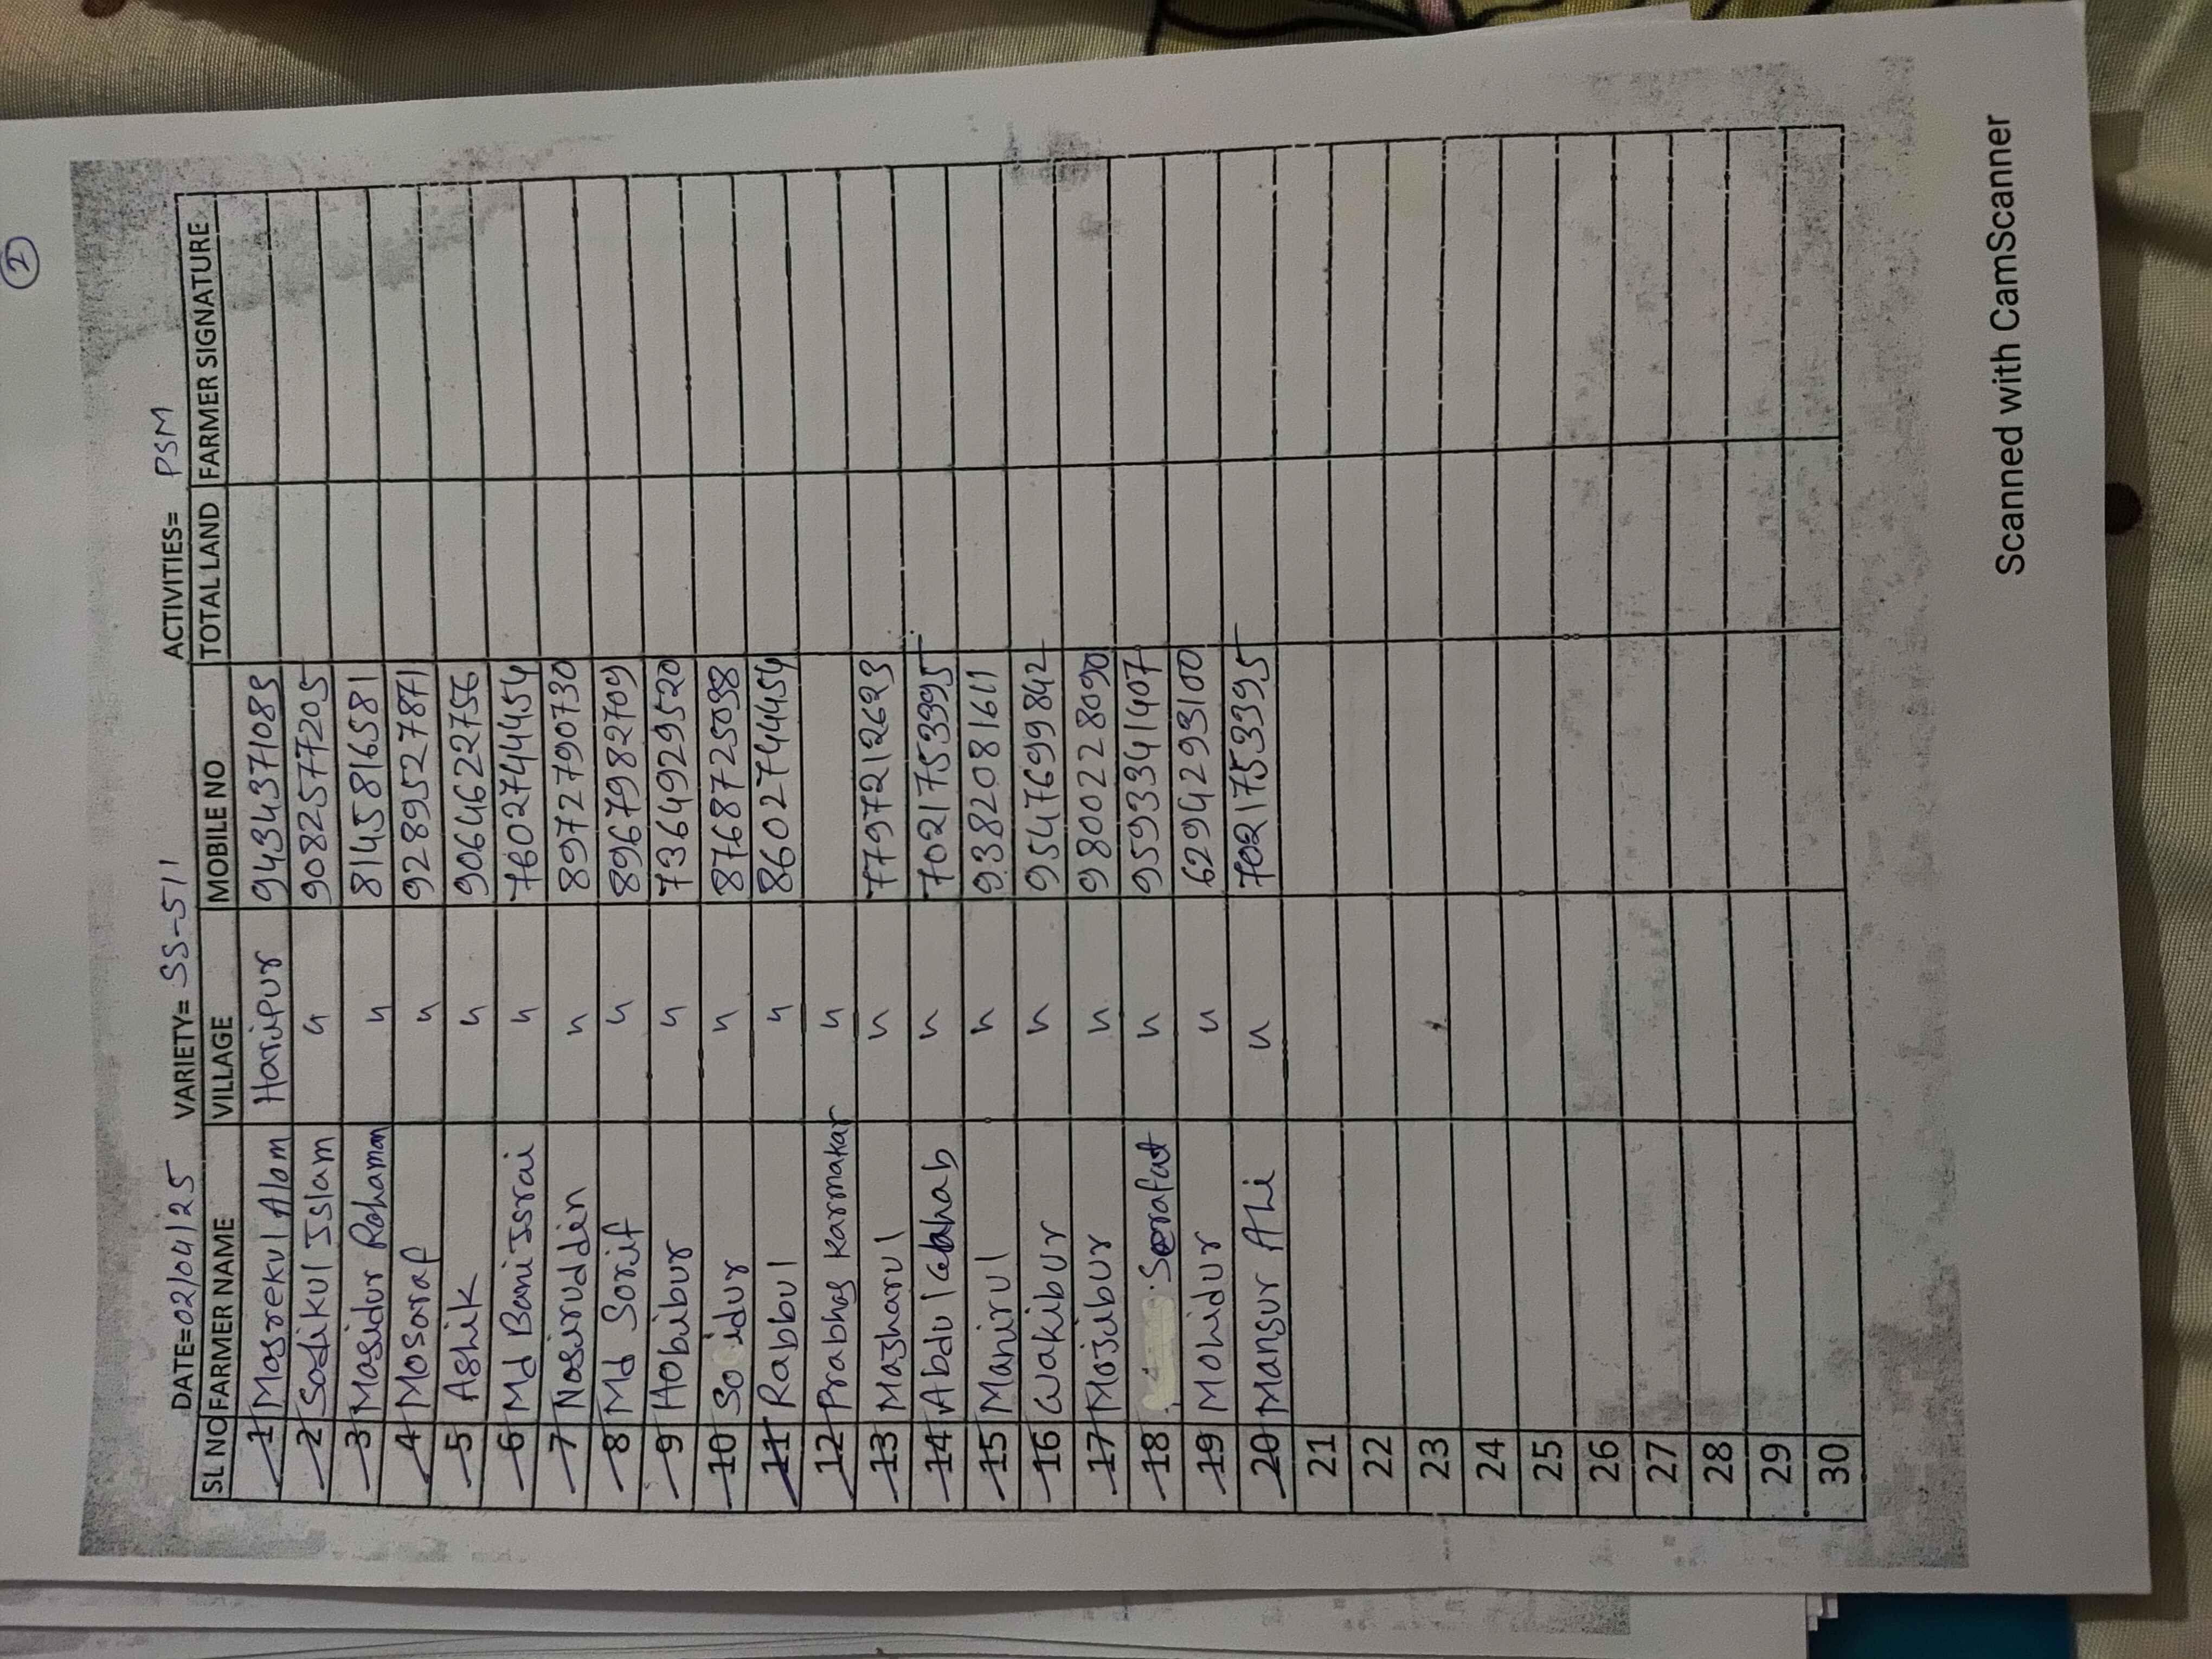 2
DATE=02/04/25 VARIETY= SS-511 ACTIVITIES= PSM
SL NO FARMER NAME VILLAGE MOBILE NO TOTAL LAND FARMER SIGNATURE
1 Masrekul Alam Haripur 9434371083
2 Sadikul Islam " 9082577205
3 Masidur Rohaman " 8145816581
4 Mosoraf " 9289527871
5 Ashik " 9064622756
6 Md Bani Israi " 7602744454
7 Nasiruddin " 8972790730
8 Md Sorif " 8967982709
9 Hobibur " 7364929520
10 So idur " 8768725098
11 Rabbul " 8602744454
12 Prabhas Karmakar "
13 Mazharul " 7797212623
14 Abdul Wahab " 7021753395
15 Manirul " 9382081611
16 Wakibur " 9547699842
17 Mojibur " 9800228090
18 Sarafat " 9593341407
19 Mohidur " 6294293100
20 Mansur ALi " 7021753395
21
22
23
24
25
26
27
28
29
30
Scanned with CamScanner